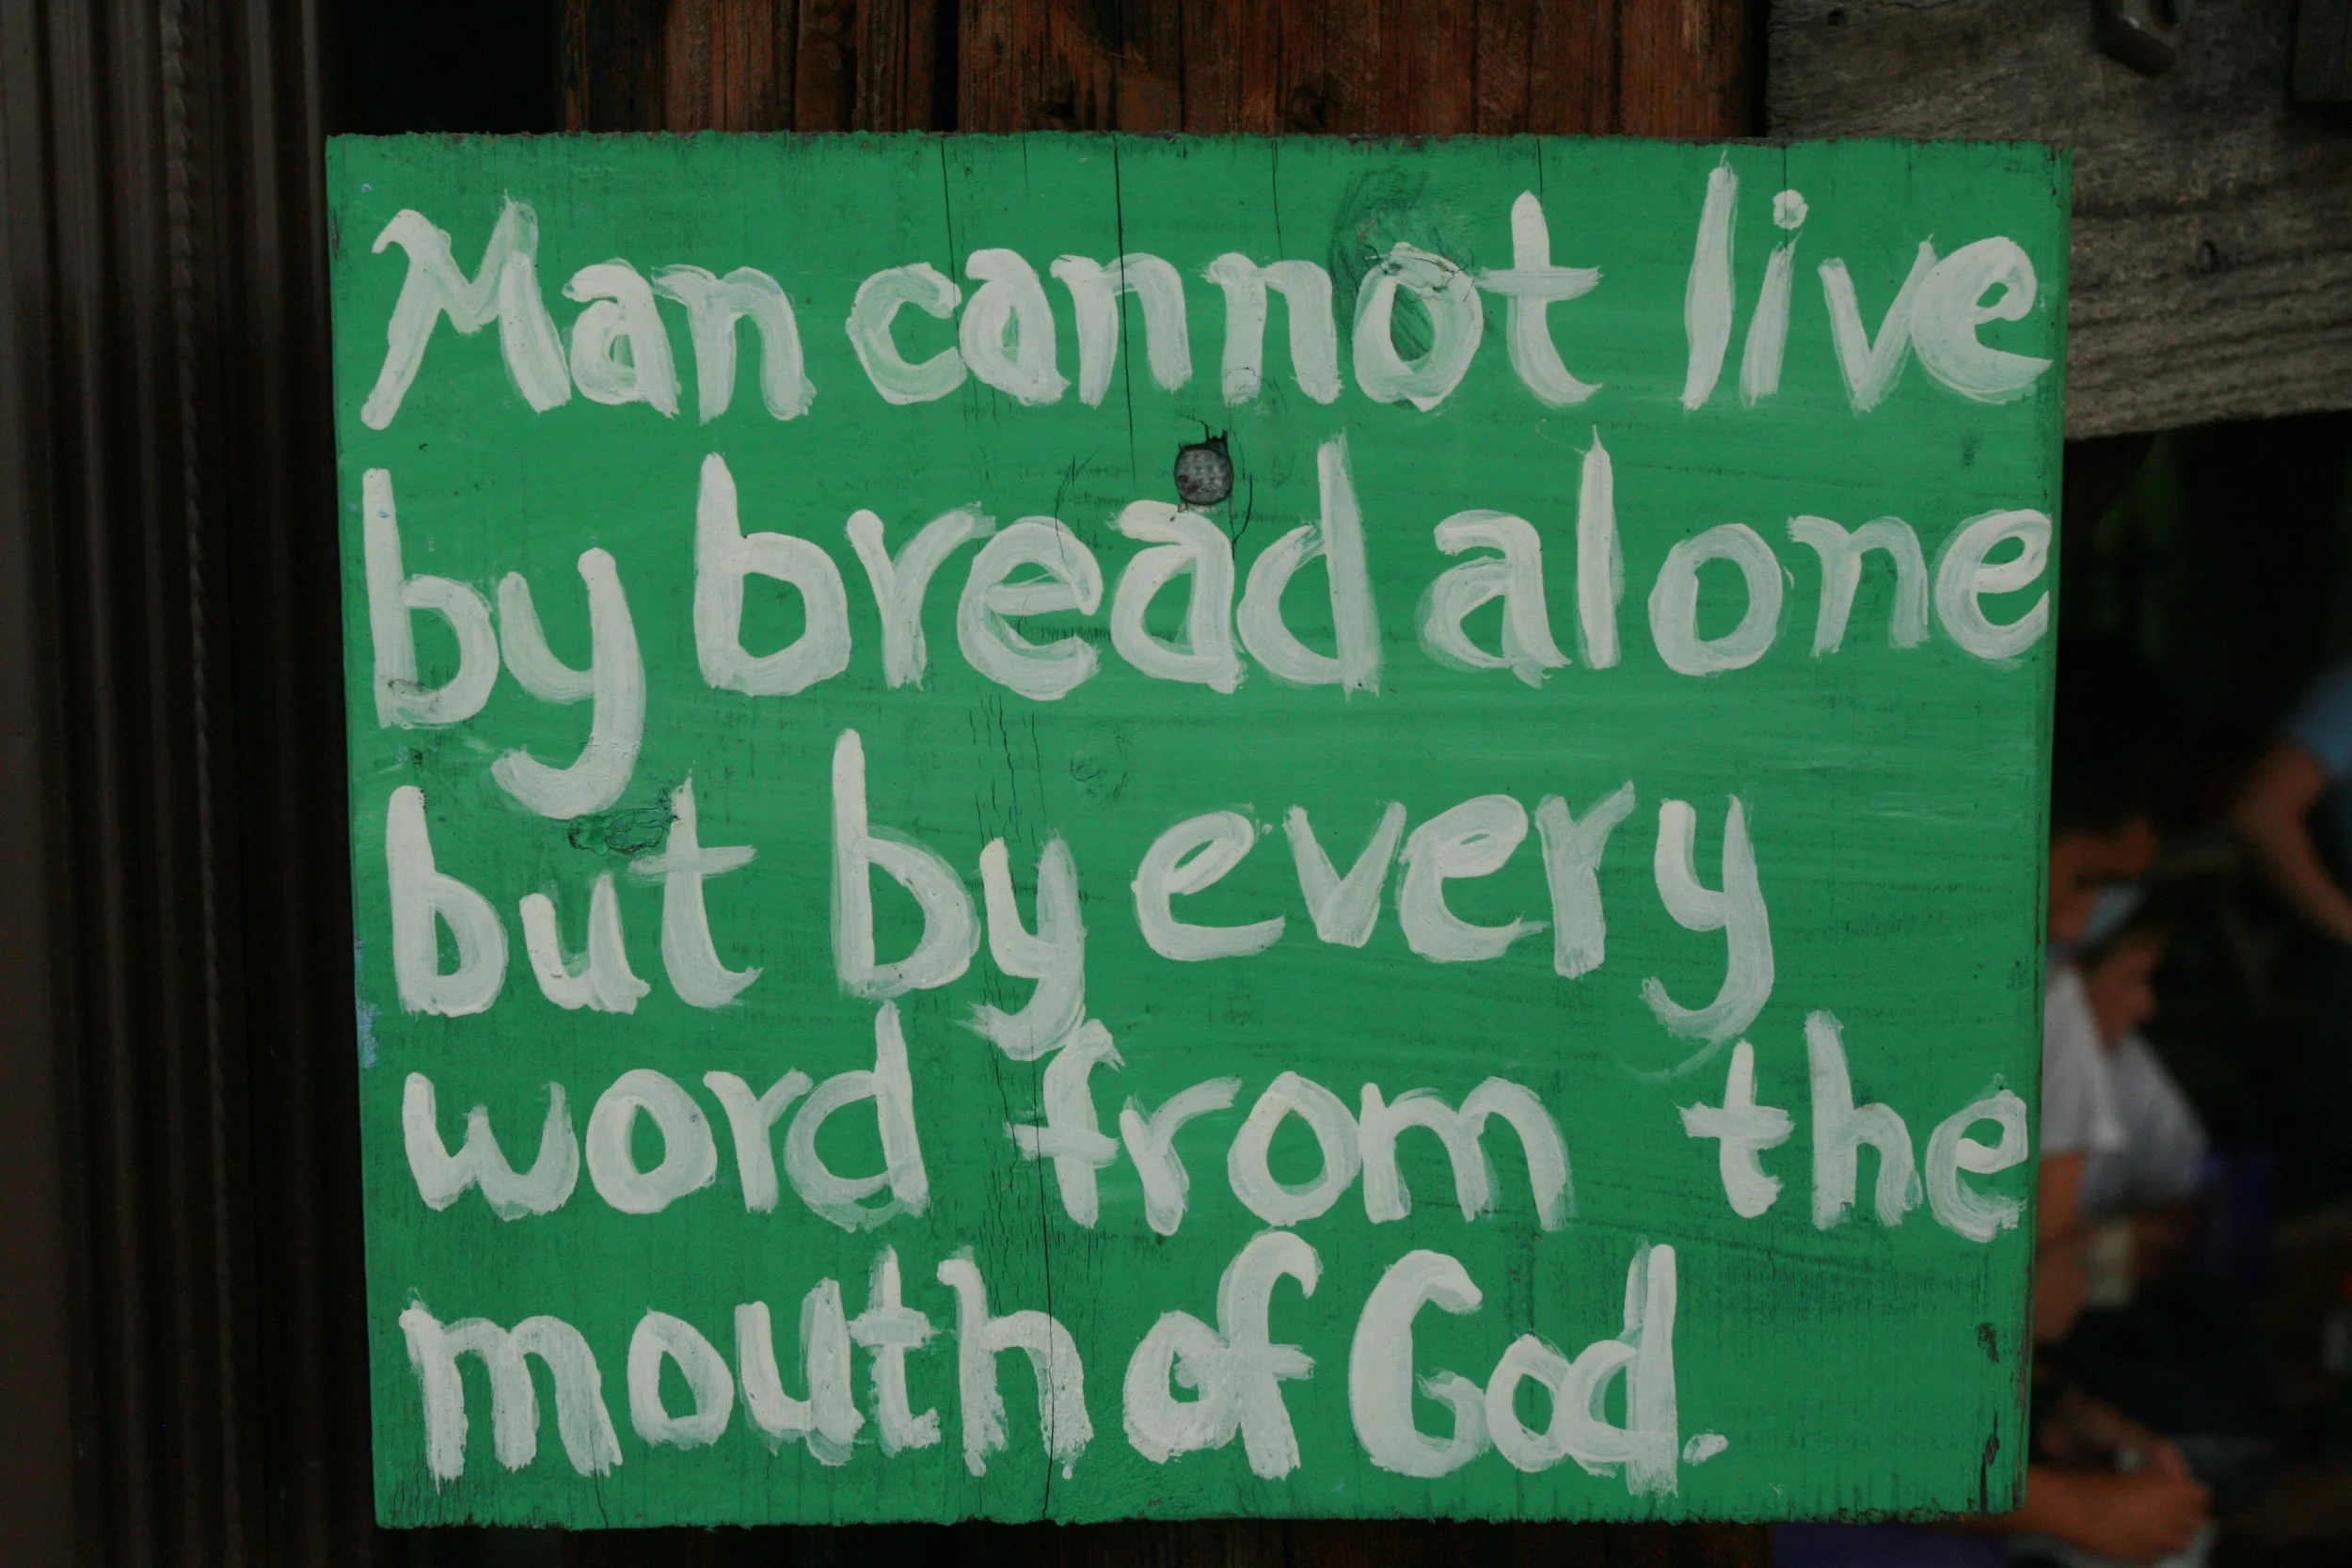 Man cannot live
by bread alone
but by every
word from the
mouth of God.